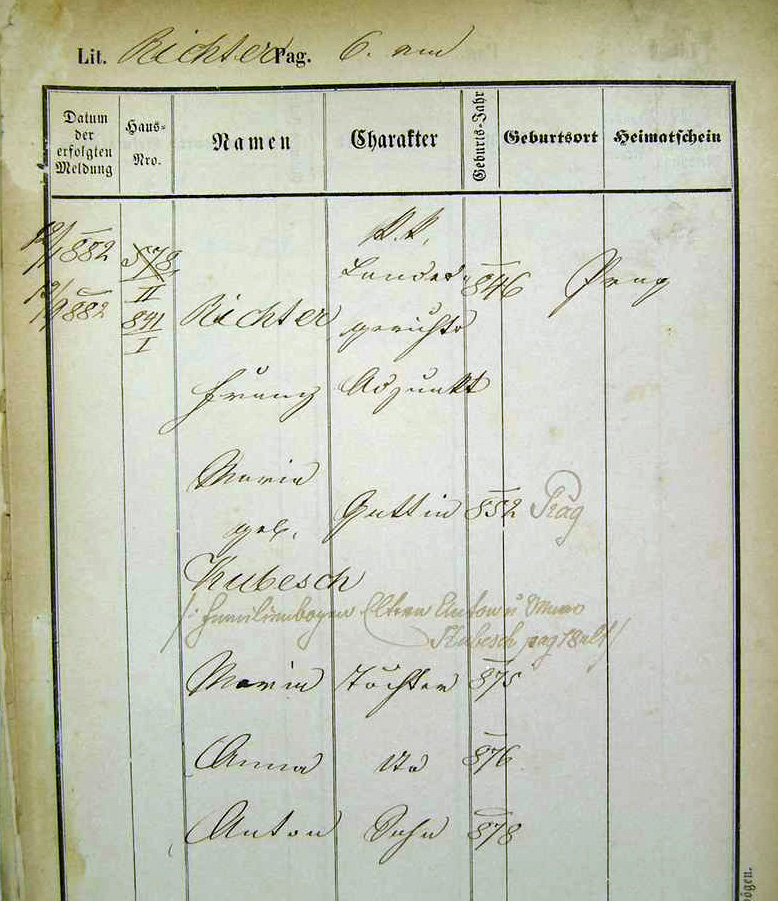 Lit. Richter Pag. 6.
Datum der erfolgten Meldung
Haus-Nro.
Namen
Charakter
Geburts-Jahr
Geburtsort
Heimatschein
12/1 882
578
II
19 882
841
I
k.k.
Landes-
846
Prag
Richter
gerichts
Franz
Adjunkt
Maria
geb.
Gattin
852
Prag
Kubesch
/: Familienbogen Eltern Anton u
Kubesch pag 18 alt /
Maria
Tochter
875
Anna
dto
876
Anton
Sohn
878